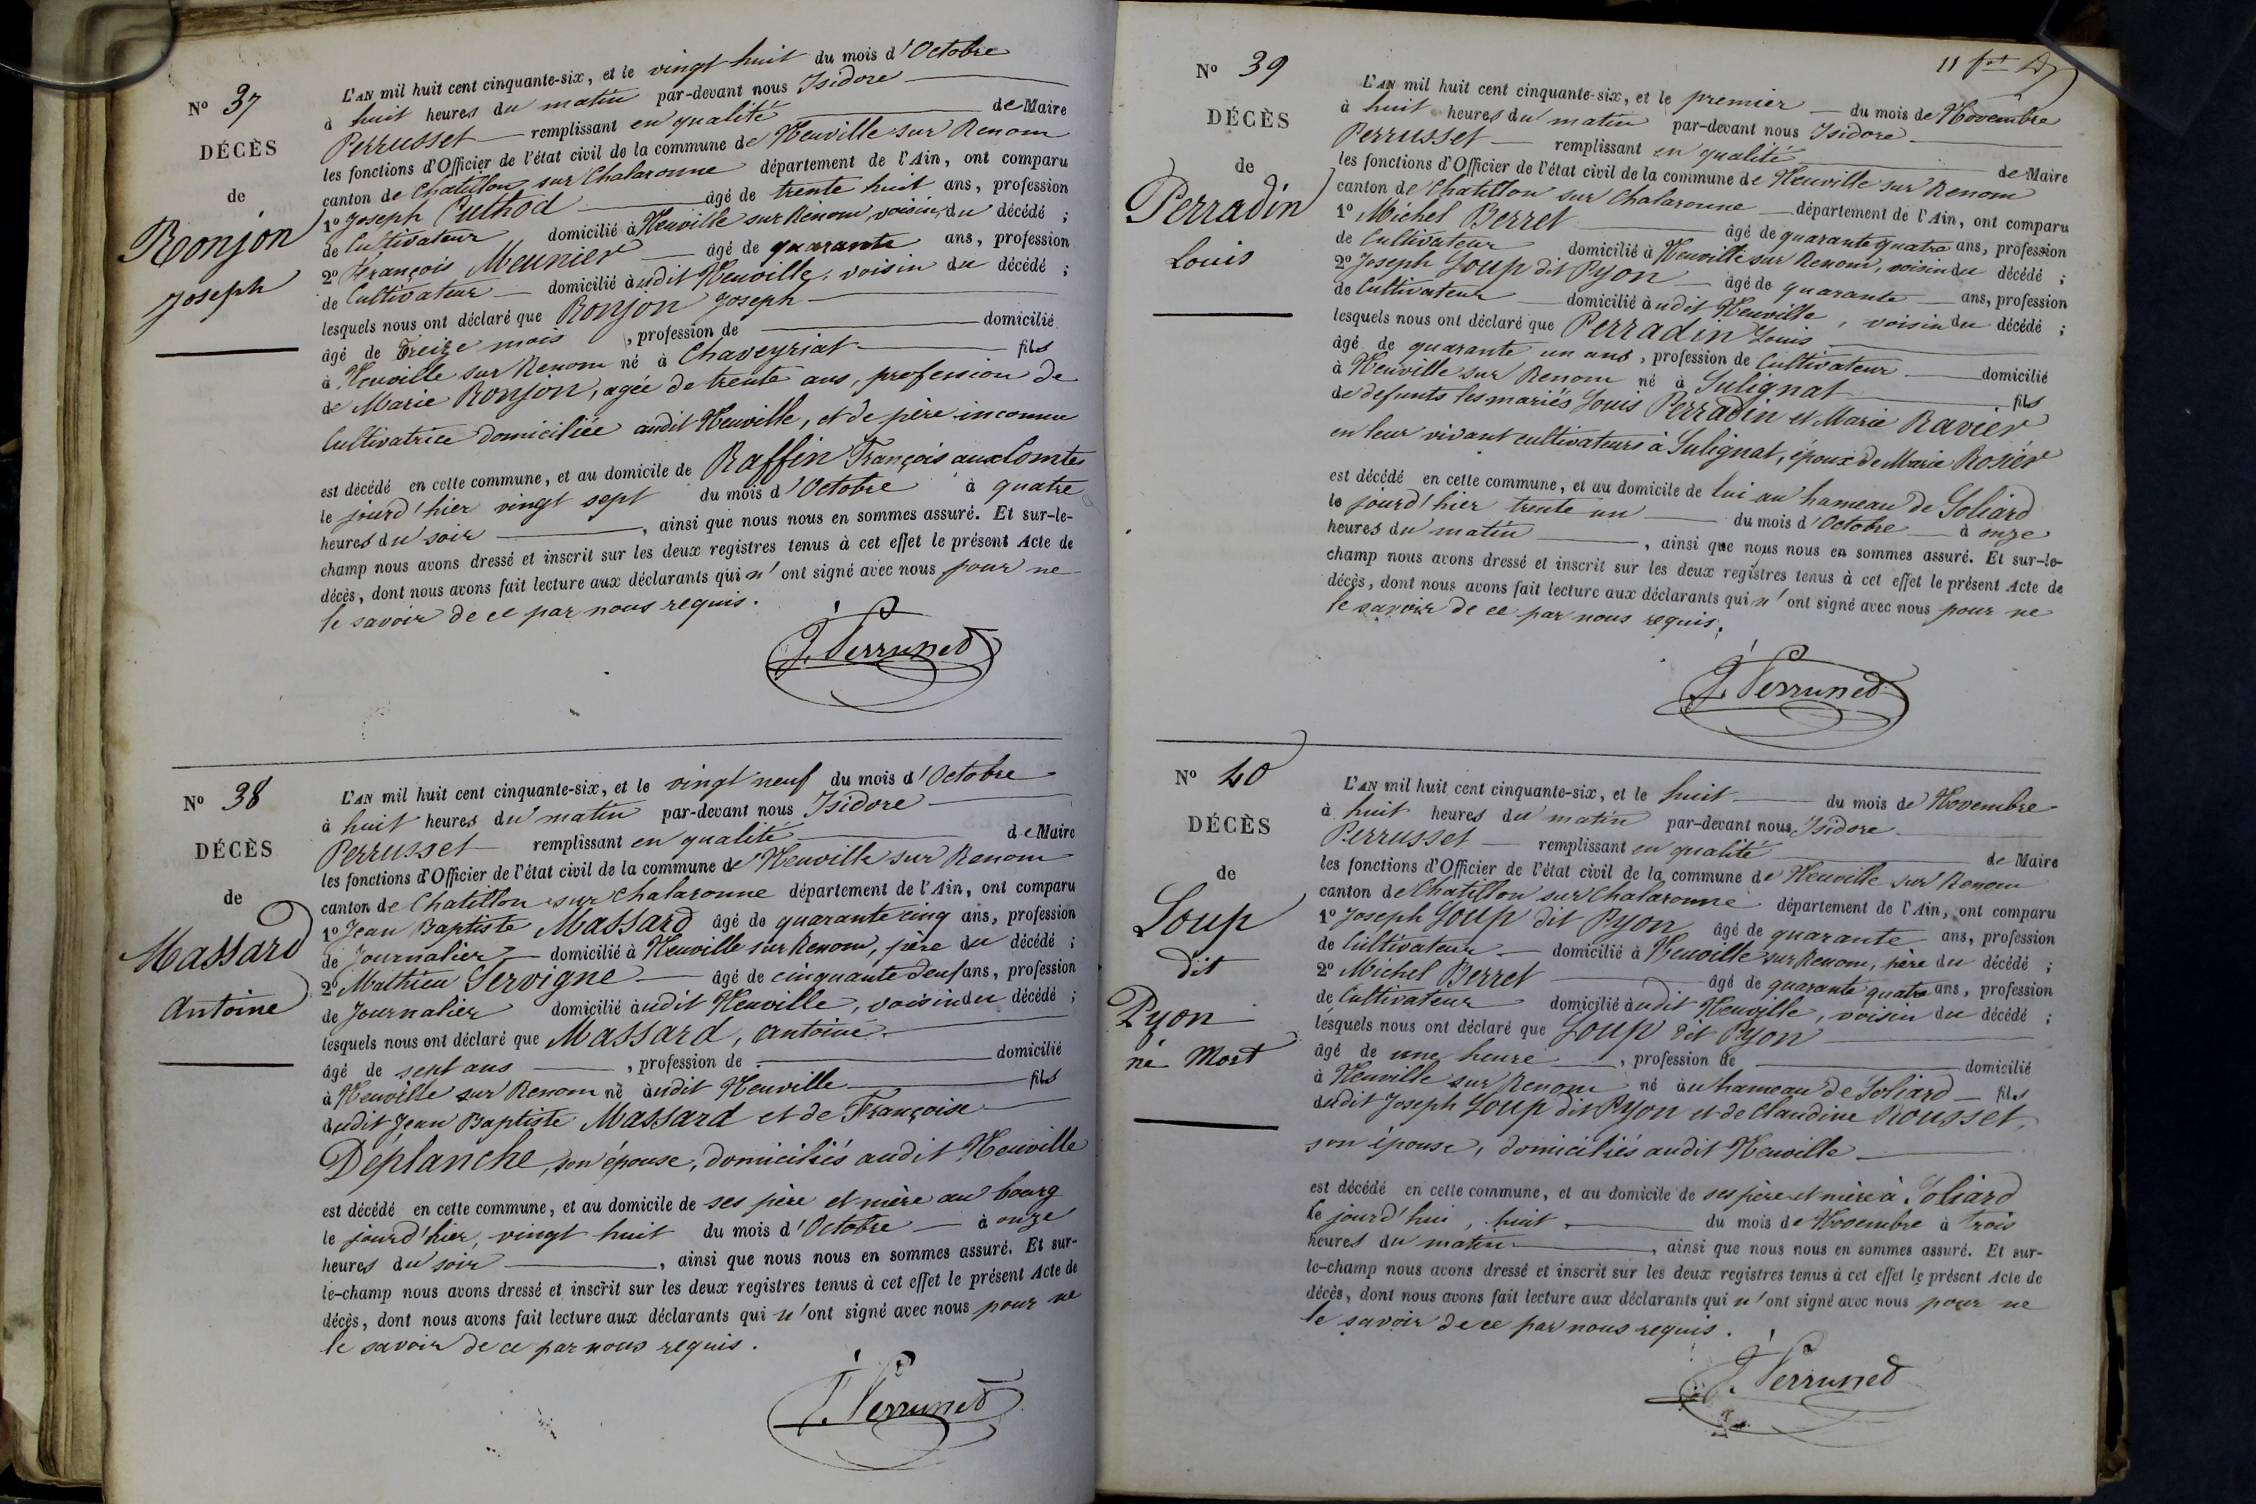 N° 37
DÉCÈS
de
Ronjon
Joseph
L'AN mil huit cent cinquante-six, et le vingt huit du mois d'Octobre
à huit heures du matin par-devant nous Isidore
Perrusset remplissant en qualité de Maire
les fonctions d'Officier de l'état civil de la commune de Neuville sur Renom
canton de Chatillon sur Chalaronne département de l'Ain, ont comparu
1° Joseph Cuthod âgé de trente huit ans, profession
de Cultivateur domicilié à Neuville sur Renom, voisin du décédé ;
2° François Meunier âgé de quarante ans, profession
de Cultivateur domicilié audit Neuville, voisin du décédé ;
lesquels nous ont déclaré que Ronjon Joseph
âgé de Treize mois, profession de domicilié
à Neuville sur Renom né à Chaveyriat fils
de Marie Ronjon, agée de trente ans, profession de
Cultivatrice domiciliée audit Neuville, et de père inconnu
est décédé en cette commune, et au domicile de Raffin François aux Comtes
le jourd'hier vingt sept du mois d'Octobre à quatre
heures du soir, ainsi que nous nous en sommes assuré. Et sur-le-
champ nous avons dressé et inscrit sur les deux registres tenus à cet effet le présent Acte de
décès, dont nous avons fait lecture aux déclarants qui n'ont signé avec nous pour ne
le savoir de ce par nous requis.
J. Perrusset
N° 38
DÉCÈS
de
Massard
Antoine
L'AN mil huit cent cinquante-six, et le vingt neuf du mois d'Octobre
à huit heures du matin par-devant nous Isidore
Perrusset remplissant en qualité de Maire
les fonctions d'Officier de l'état civil de la commune de Neuville sur Renom
canton de Chatillon sur Chalaronne département de l'Ain, ont comparu
1° Jean Baptiste Massard âgé de quarante cinq ans, profession
de Journalier domicilié à Neuville sur Renom, père du décédé ;
2° Mathieu Servigne âgé de cinquante deux ans, profession
de Journalier domicilié audit Neuville, voisin du décédé ;
lesquels nous ont déclaré que Massard, Antoine
âgé de sept ans, profession de domicilié
à Neuville sur Renom né audit Neuville fils
dudit Jean Baptiste Massard et de Françoise
Déplanche, son épouse, domiciliés audit Neuville
est décédé en cette commune, et au domicile de ses père et mère au bourg
le jourd'hier, vingt huit du mois d'Octobre à onze
heures du soir, ainsi que nous nous en sommes assuré. Et sur-
le-champ nous avons dressé et inscrit sur les deux registres tenus à cet effet le présent Acte de
décès, dont nous avons fait lecture aux déclarants qui n'ont signé avec nous pour ne
le savoir de ce par nous requis.
J. Perrusset
11
N° 39
DÉCÈS
de
Perradin
Louis
L'AN mil huit cent cinquante-six, et le premier du mois de Novembre
à huit heures du matin par-devant nous Isidore
Perrusset remplissant en qualité de Maire
les fonctions d'Officier de l'état civil de la commune de Neuville sur Renom
canton de Chatillon sur Chalaronne département de l'Ain, ont comparu
1° Michel Berret âgé de quarante quatre ans, profession
de Cultivateur domicilié à Neuville sur Renom, voisin du décédé ;
2° Joseph Loup dit Pyon âgé de quarante ans, profession
de Cultivateur domicilié audit Neuville, voisin du décédé ;
lesquels nous ont déclaré que Perradin Louis
âgé de quarante un ans, profession de Cultivateur domicilié
à Neuville sur Renom né à Sulignat fils
de defunts les mariés Louis Perradin et Marie Ravier
en leur vivant cultivateurs à Sulignat, époux de Marie Rosier
est décédé en cette commune, et au domicile de lui au hameau de Soliard
le jourd'hier trente un du mois d'Octobre à onze
heures du matin, ainsi que nous nous en sommes assuré. Et sur-le-
champ nous avons dressé et inscrit sur les deux registres tenus à cet effet le présent Acte de
décès, dont nous avons fait lecture aux déclarants qui n'ont signé avec nous pour ne
le savoir de ce par nous requis.
J. Perrusset
N° 40
DÉCÈS
de
Loup
dit
Pyon
né Mort
L'AN mil huit cent cinquante-six, et le huit du mois de Novembre
à huit heures du matin par-devant nous Isidore
Perrusset remplissant en qualité de Maire
les fonctions d'Officier de l'état civil de la commune de Neuville sur Renom
canton de Chatillon sur Chalaronne département de l'Ain, ont comparu
1° Joseph Loup dit Pyon âgé de quarante ans, profession
de Cultivateur domicilié à Neuville sur Renom, père du décédé ;
2° Michel Berret âgé de quarante quatre ans, profession
de Cultivateur domicilié audit Neuville, voisin du décédé ;
lesquels nous ont déclaré que Loup dit Pyon
âgé de une heure, profession de domicilié
à Neuville sur Renom né au hameau de Soliard fils
dudit Joseph Loup dit Pyon et de Claudine Rousset,
son épouse, domiciliés audit Neuville
est décédé en cette commune, et au domicile de ses père et mère à Soliard
le jourd'hui, huit du mois de Novembre à trois
heures du matin, ainsi que nous nous en sommes assuré. Et sur-
le-champ nous avons dressé et inscrit sur les deux registres tenus à cet effet le présent Acte de
décès, dont nous avons fait lecture aux déclarants qui n'ont signé avec nous pour ne
le savoir de ce par nous requis.
J. Perrusset